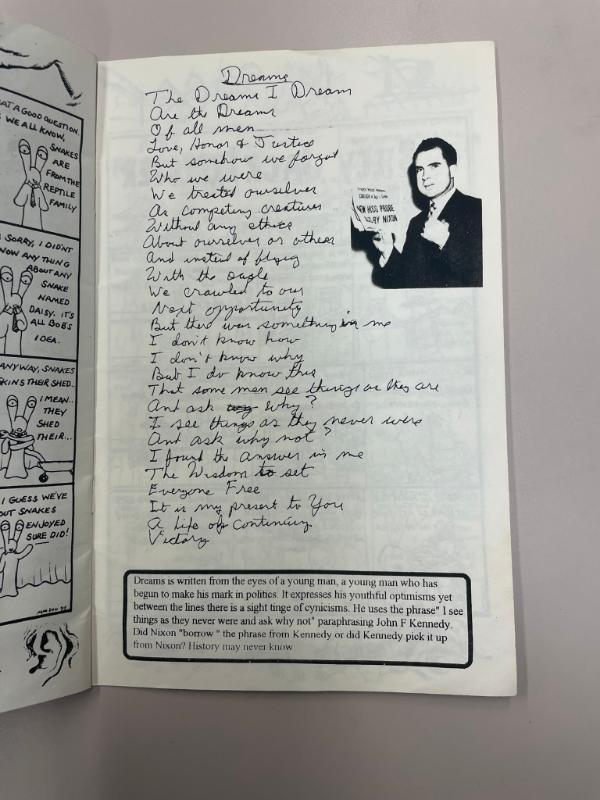 HAT A GOOD QUESTION.
WE ALL KNOW,
SNAKES
ARE
FROM THE
REPTILE
FAMILY
SORRY, I DIDN'T
NOW ANYTHING
ABOUT ANY
SNAKE
NAMED
DAISY. IT'S
ALL BOB'S
IDEA.
ANYWAY, SNAKES
KINS THEIR SHED..
I MEAN..
THEY
SHED
THEIR...
I GUESS WE'VE
OUT SNAKES
ENJOYED
SURE DID!
Dreams
The Dreams I Dream
Are the Dreams
Of all men
Love, Honor & Justice
But somehow we forgot
Who we were
We treated ourselves
As competing creatures
Without any ethics
About ourselves or others
And instead of flying
With the eagle
We crawled to our
Next opportunity
But there was something in me
I don't know how
I don't know why
But I do know this
That some men see things as they are
And ask why?
I see things as they never were
And ask why not?
I found the answer in me
The Wisdom to set
Everyone Free
It is my present to You
A Life of Continuing
Victory
NEW HISS PROBE
BY NIXON
Dreams is written from the eyes of a young man, a young man who has
begun to make his mark in politics. It expresses his youthful optimisms yet
between the lines there is a sight tinge of cynicisms. He uses the phrase" I see
things as they never were and ask why not" paraphrasing John F Kennedy.
Did Nixon "borrow " the phrase from Kennedy or did Kennedy pick it up
from Nixon? History may never know